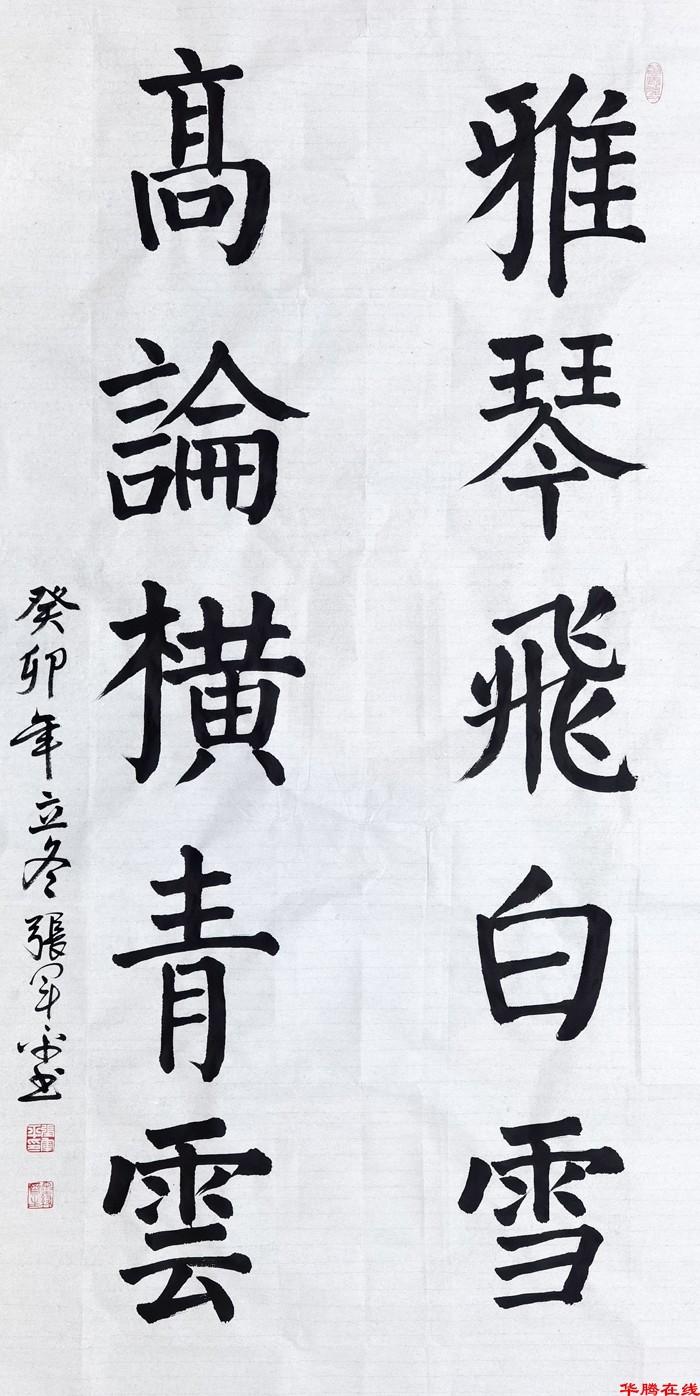 雅琴飛白雪
高論橫青雲
癸卯年立冬張軍平書
华腾在线